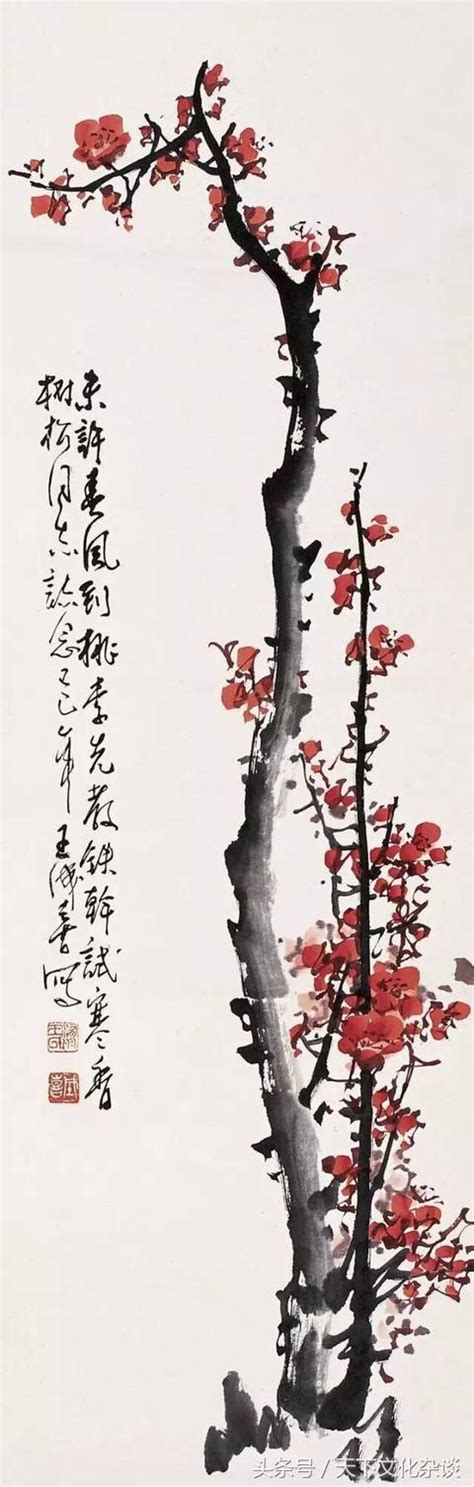 未許春風到桃李先教鐵幹試寒香
樹松同志誌念己巳年王成喜寫
头条号/天下文化杂谈